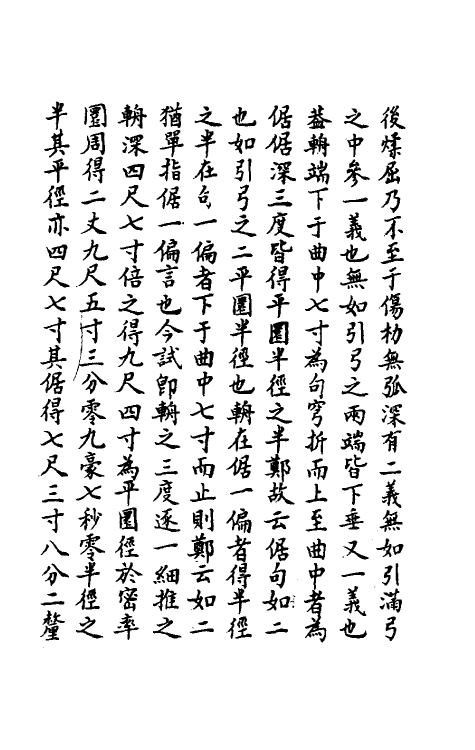 後煣屈乃不至于傷朸無弧深有二義無如引滿弓
之中參一義也無如引弓之兩端皆下垂又一義也
蓋輈端下于曲中七寸為句穹折而上至曲中者為
倨倨深三度皆得平圜半徑之半鄭故云倨句如二
也如引弓之二平圜半徑也輈在倨一偏者得半徑
之半在句一偏者下于曲中七寸而止則鄭云如二
猶單指倨一偏言也今試卽輈之三度逐一細推之
輈深四尺七寸倍之得九尺四寸為平圜徑於密率
圜周得二丈九尺五寸三分零九豪七秒零半徑之
半其平徑亦四尺七寸其倨得七尺三寸八分二釐